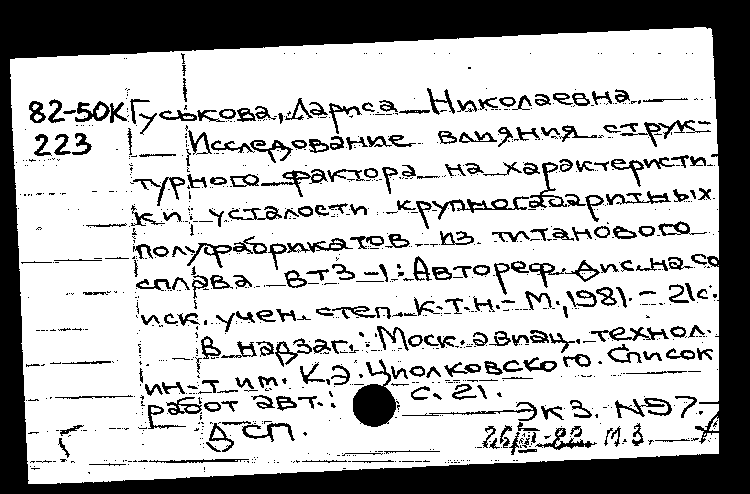 82-50К Гуськова, Лариса Николаевна
223 Исследование влияния струк-
турного фактора на характеристи-
ки усталости крупногабаритных
полуфабрикатов из титанового
сплава ВТ3-1: Автореф. дис. на со
иск. учен. степ. к.т.н. - М., 1981. - 21с.
В надзаг.: Моск. авиац. технол.
ин-т им. К.Э. Циолковского. Список
работ авт.: с. 21.
Экз. №97.
ДСП.
26/III-82. М.З.